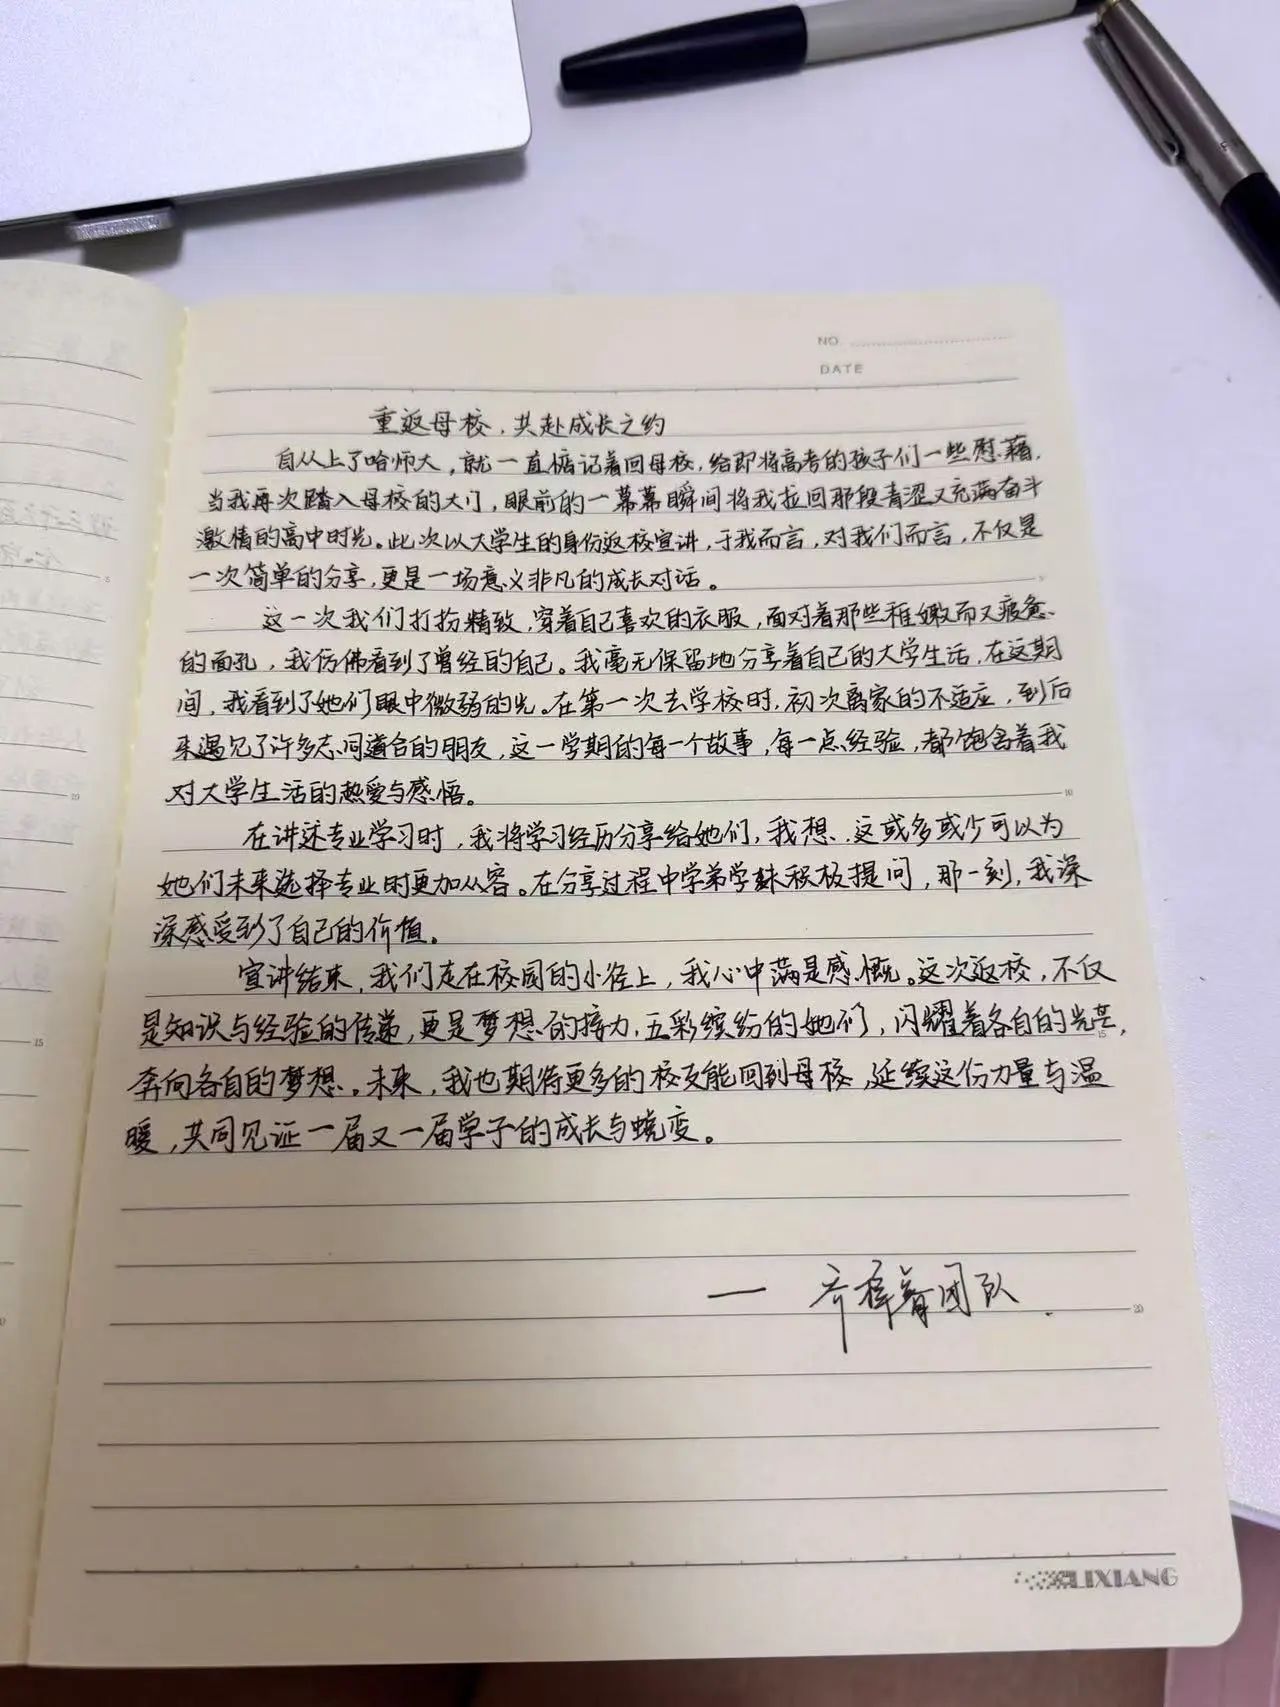 NO.
DATE
重返母校，共赴成长之约
自从上了哈师大，就一直惦记着回母校，给即将高考的孩子们一些慰藉，
当我再次踏入母校的大门，眼前的一幕幕瞬间将我拉回那段青涩又充满奋斗
激情的高中时光。此次以大学生的身份返校宣讲，于我而言，对我们而言，不仅是
一次简单的分享，更是一场意义非凡的成长对话。
这一次我们打扮精致，穿着自己喜欢的衣服，面对着那些稚嫩而又疲惫
的面孔，我仿佛看到了曾经的自己。我毫无保留地分享着自己的大学生活，在这期
间，我看到了她们眼中微弱的光。在第一次去学校时，初次离家的不适应，到后
来遇见了许多志同道合的朋友，这一学期的每一个故事，每一点经验，都饱含着我
对大学生活的热爱与感悟。
在讲述专业学习时，我将学习经历分享给她们，我想，这或多或少可以为
她们未来选择专业时更加从容。在分享过程中学弟学妹积极提问，那一刻，我深
深感受到了自己的价值。
宣讲结束，我们走在校园的小径上，我心中满是感慨。这次返校，不仅
是知识与经验的传递，更是梦想的接力，五彩缤纷的她们，闪耀着各自的光芒，
奔向各自的梦想。未来，我也期待更多的校友能回到母校，延续这份力量与温
暖，共同见证一届又一届学子的成长与蜕变。
— 齐 团队
LIXIANG